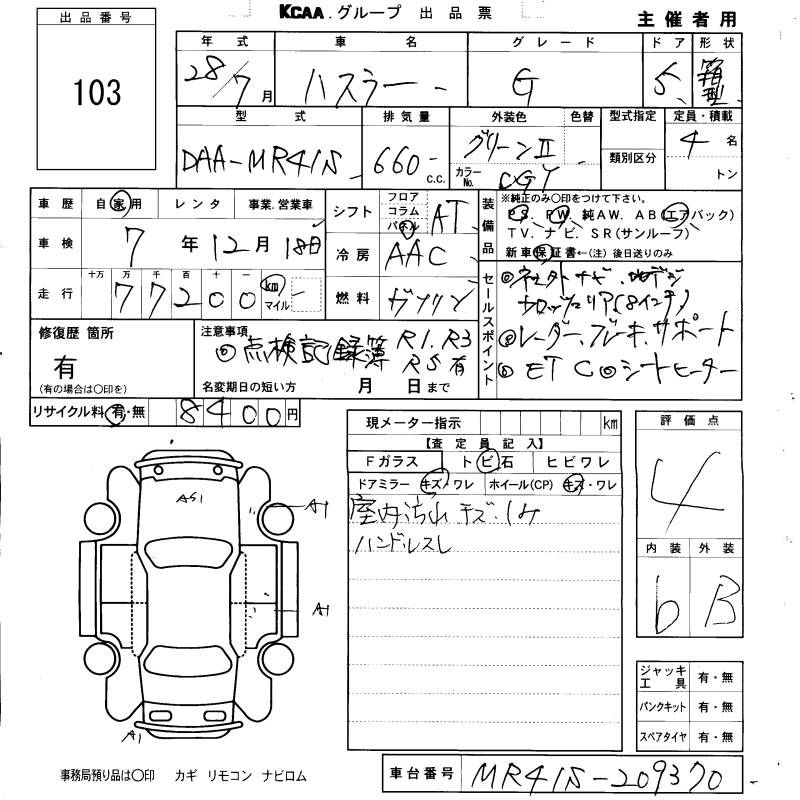 KCAA.グループ 出品票
主催者用
出品番号
103
年式 車名 グレード ドア 形状
28/7月 ハスラー G 5 箱型
型式 排気量 外装色 色替 型式指定 定員・積載
DAA-MR41S 660 c.c. グリーンII 4名
カラーNo. CGY 類別区分 トン
車歴 自家用 レンタ 事業.営業車
シフト フロア コラム パネル AT
装備品 ※純正のみ○印をつけて下さい。
PS. PW. 純AW. AB(エアバック)
TV. ナビ. SR(サンルーフ)
新車保証書←(注) 後日送りのみ
車検 7年12月18日
冷房 AAC
走行 十万 万 千 百 十 一
77200 km マイル
燃料 ガソリン
セールスポイント
レーダーブレーキサポート
ETC ◎シートヒーター
修復歴 箇所
有
(有の場合は○印を)
注意事項
◎点検記録簿 R1.R3
R5有
名変期日の短い方 月 日まで
リサイクル料 有・無 8400円
現メーター指示 km
【査定員記入】
Fガラス トビ石 ヒビワレ
ドアミラー キズ・ワレ ホイール(CP) キズ・ワレ
室内汚れ キズ.
ハンドルスレ
評価点
4
内装 外装
b B
AS1
A1
A1
A1
ジャッキ工具 有・無
パンクキット 有・無
スペアタイヤ 有・無
事務局預り品は○印 カギ リモコン ナビロム
車台番号 MR41S-209370